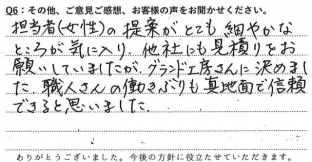 Q6：その他、ご意見ご感想、お客様の声をお聞かせください。
担当者(女性)の提案がとても細やかな
ところが気に入り、他社にも見積りをお
願いしていましたが、グランド工房さんに決めまし
た。職人さんの働きぶりも真地面で信頼
できると思いました。
ありがとうございました。今後の方針に役立たせていただきます。